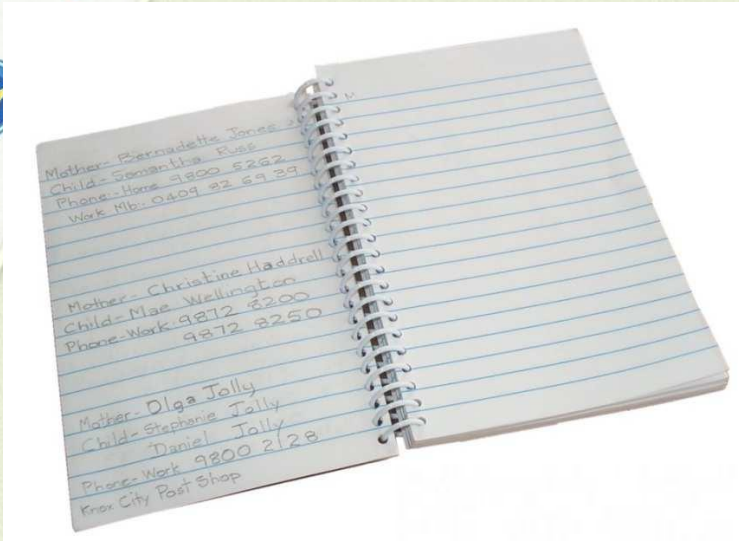 Mother- Bernadette Jones
Child- Samantha Russ
Phone- Home 9800 5262
Work Mb: 0409 82 69 39
Mother- Christine Haddrell
Child- Mae Wellington
Phone-Work: 9872 8200
9872 8250
Mother- Olga Jolly
Child- Stephanie Jolly
Daniel Jolly
Phone- Work 9800 2128
Knox City Post Shop
M